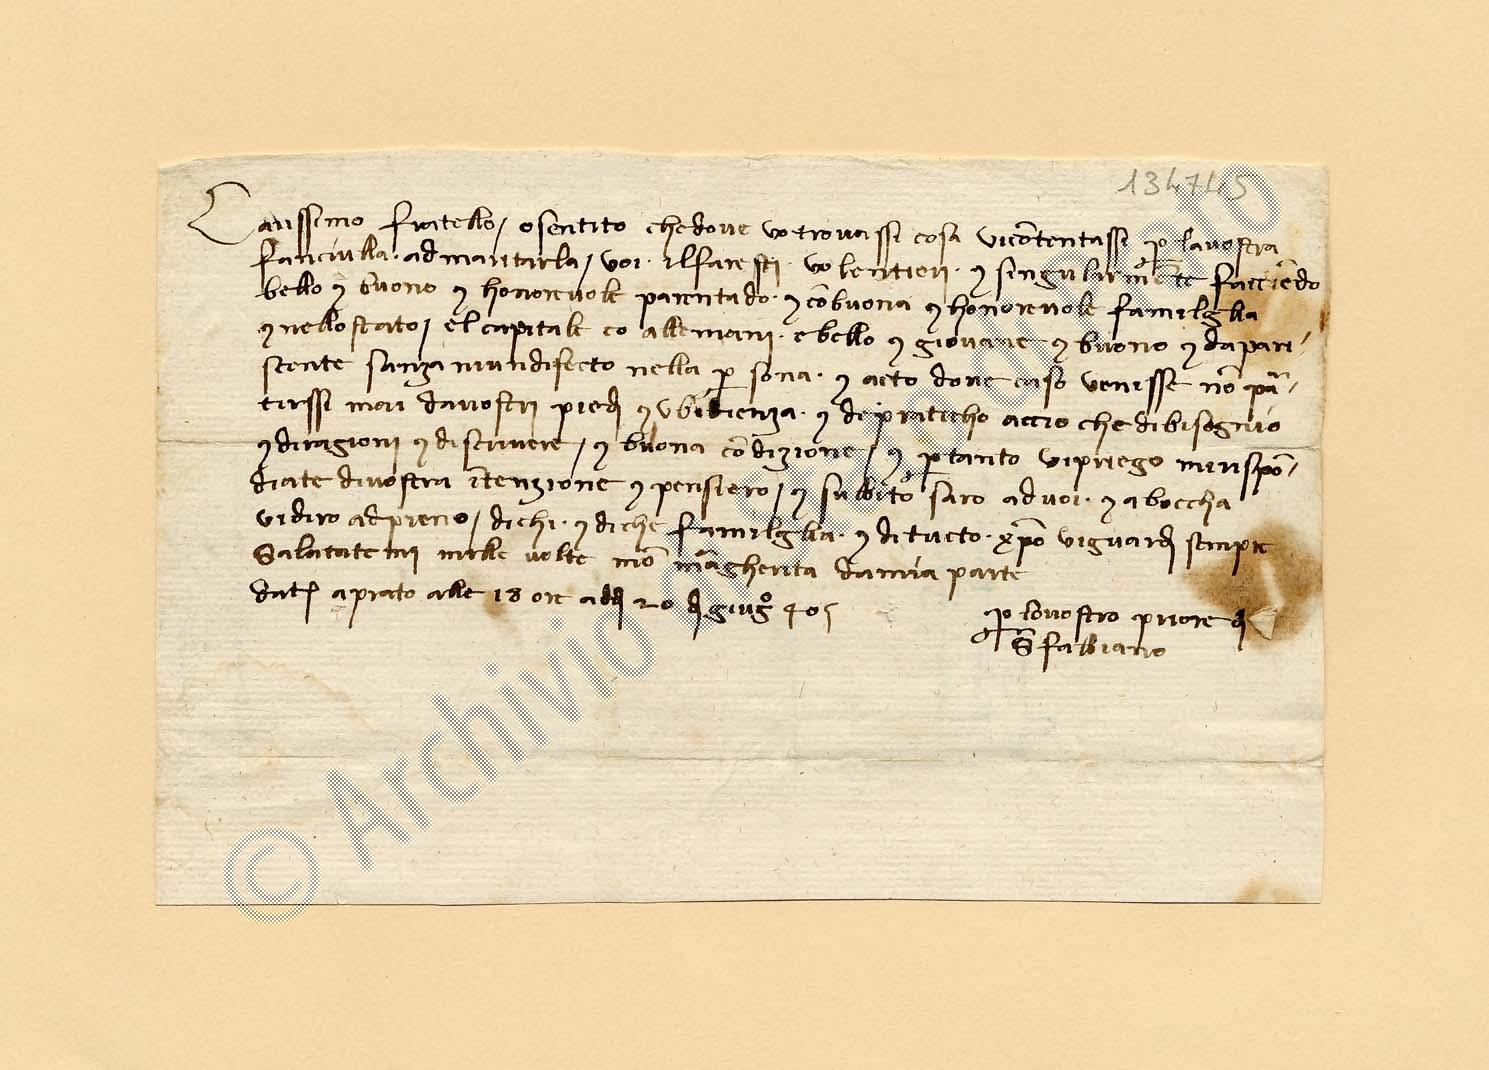 134745
Carissimo fratello, o sentito che dove vo trovassi cosa vicōtentassi p lavostra
fanciulla · admaritarla, voi · il faresti · volentieri · ⁊ singularmēte faccēdo
bello ⁊ buono ⁊ honorevole parentado · ⁊ cōbuona ⁊ honorevole familglia
⁊ nello stato, el capitale co allemani · e bello ⁊ giovane ⁊ buono ⁊ dapari
scente sanza niundifecto nella p sona · ⁊ acto dove caso venisse nō pā
tirssi mai davostri piedi ⁊ ubidienza · ⁊ de praticho accio che di bisognio
⁊ diragioni ⁊ discrivere, ⁊ buona cōdizione, ⁊ p tanto vipriego mirispō
diate divostra ītenzione ⁊ pensiero, ⁊ subbito saro advoi · ⁊ a boccha
vidiro adpieno, dichi · ⁊ diche familglia · ⁊ ditucto · xp̄o viguardi sempre
Salutatemi mille volte mō māgherita damia parte
dat aprato alle 18 ore adi 20 di giugo 405
p lo vostro priore di
S fabbiano
© Archivio di Stato di Prato